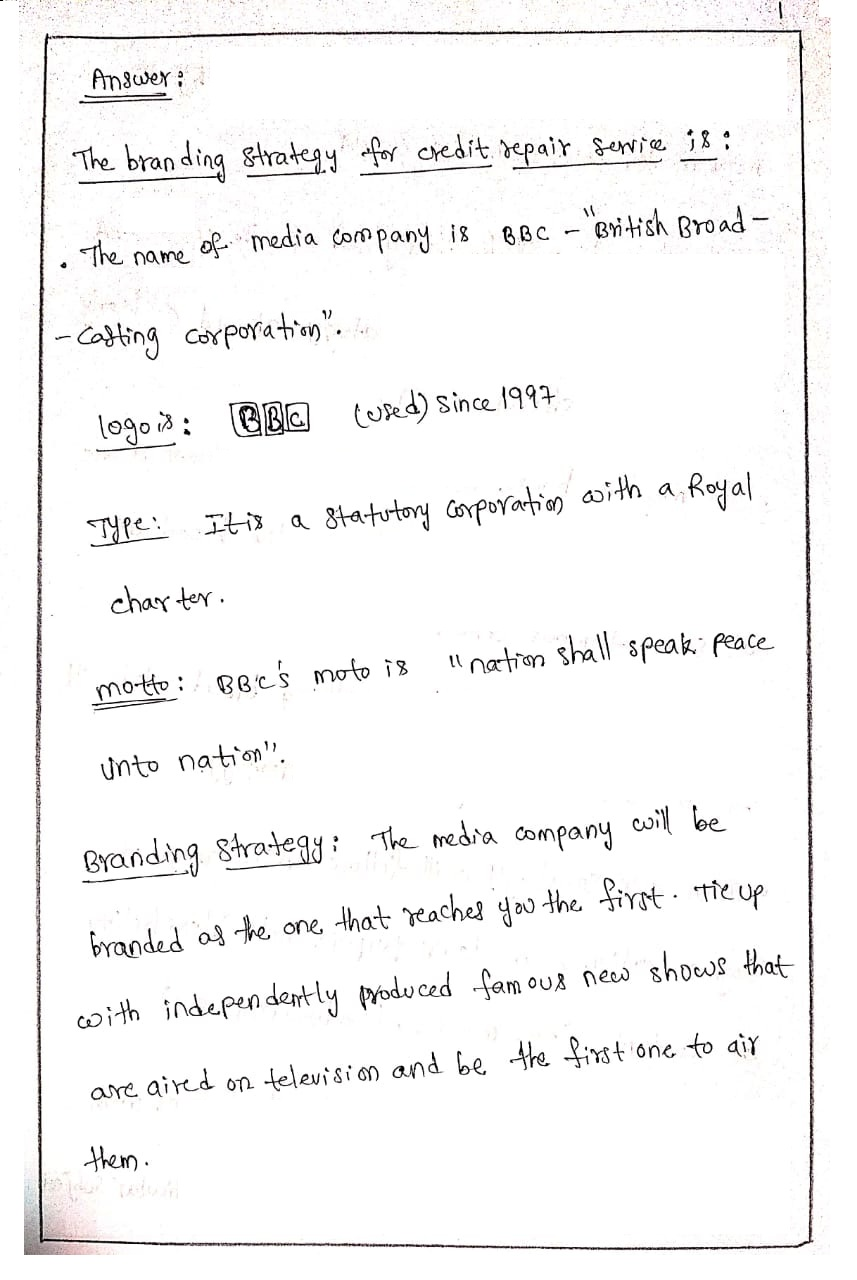 1
Answer:
The branding strategy for credit repair service is:
. The name of media company is BBC - "British Broad-
- Casting corporation".
logo is: BBC (used) Since 1997
Type: It is a statutory corporation with a Royal
charter.
motto: BBC's moto is "nation shall speak peace
unto nation".
Branding strategy: The media company will be
branded as the one that reaches you the first. Tie up
with independently produced famous new shows that
are aired on television and be the first one to air
them.